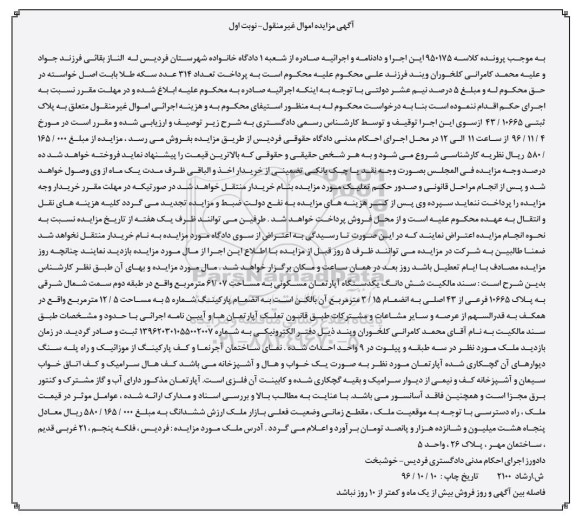 آگهی مزایده اموال غیرمنقول - نوبت اول
به موجب پرونده کلاسه ۹۵۰۱۷۵ این اجرا و دادنامه و اجرائیه صادره از شعبه ۱ دادگاه خانواده شهرستان فردیس له الناز بقائی فرزند جواد
و علیه محمد کامرانی کلخوران ویند فرزند علی محکوم علیه محکوم است به پرداخت تعداد ۳۱۴ عدد سکه طلا بابت اصل خواسته در
حق محکوم له و مبلغ ۵ درصد نیم عشر دولتی با توجه به اینکه اجرائیه صادره به محکوم علیه ابلاغ شده و در مهلت مقرر نسبت به
اجرای حکم اقدام ننموده است بنا به درخواست محکوم له به منظور استیفای محکوم به و هزینه اجرائی اموال غیرمنقول متعلق به پلاک
ثبتی ۱۰۶۶۵ / ۴۳ از سوی این اجرا توقیف و توسط کارشناس رسمی دادگستری به شرح زیر توصیف و ارزیابی شده و مقرر است در مورخ
۴ / ۱۱ / ۹۶ از ساعت ۱۱ الی ۱۲ در محل اجرای احکام مدنی دادگاه حقوقی فردیس از طریق مزایده بفروش می رسد ، مزایده از مبلغ ۰۰۰ / ۱۶۵
/ ۵۸۰ ریال نظریه کارشناسی شروع می شود و به هر شخص حقیقی و حقوقی که بالاترین قیمت را پیشنهاد نماید فروخته خواهد شد ده
درصد وجه مزایده فی المجلس بصورت وجه نقد یا چک بانکی تضمینی از خریدار اخذ و الباقی ظرف مدت یک ماه از وی وصول خواهد
شد و پس از انجام مراحل قانونی و صدور حکم تملیک مورد مزایده بنام خریدار منتقل خواهد شد در صورتیکه در مهلت مقرر خریدار وجه
مزایده را پرداخت ننماید سپرده وی پس از کسر هزینه های مزایده به نفع دولت ضبط و مزایده تجدید می گردد کلیه هزینه های نقل
و انتقال به عهده محکوم علیه است و از محل فروش پرداخت خواهد شد . طرفین می توانند ظرف یک هفته از تاریخ مزایده نسبت به
نحوه انجام مزایده اعتراض نمایند که در این صورت تا رسیدگی به اعتراض از سوی دادگاه مورد مزایده به نام خریدار منتقل نخواهد شد
ضمنا طالبین به شرکت در مزایده می توانند ظرف ۵ روز قبل از مزایده با اطلاع این اجرا از مال مورد مزایده بازدید نمایند چنانچه روز
مزایده مصادف با ایام تعطیل باشد روز بعد در همان ساعت و مکان برگزار خواهد شد . مال مورد مزایده و بهای آن طبق نظر کارشناس
بدین شرح است : سند مالکیت شش دانگ یکدستگاه آپارتمان مسکونی به مساحت ۶۱/۰۷ مترمربع واقع در طبقه دوم سمت شمال شرقی
به پلاک ۱۰۶۶۵ فرعی از ۴۳ اصلی به انضمام ۱۵ / ۳ مترمربع آن بالکن است به انضمام پارکینگ شماره ۵ به مساحت ۵ / ۱۲ مترمربع واقع در
همکف به قدرالسهم از عرصه و سایر مشاعات و مشترکات طبق قانون تملک آپارتمان ها و آیین نامه اجرائی با حدود و مشخصات طبق
سند مالکیت به نام آقای محمد کامرانی کلخوران ویند ذیل دفتر الکترونیکی به شماره ۱۳۹۶۲۰۳۰۱۰۵۵۰۰۲۰۰۷ ثبت و صادر گردید. در زمان
بازدید ملک مورد نظر در سه طبقه و پیلوت در ۹ واحد احداث شده . نمای ساختمان آجرنما و کف پارکینگ از موزائیک و راه پله سنگ
دیوارهای آن گچکاری شده آپارتمان مورد نظر به صورت یک خواب و هال و آشپزخانه می باشد کف هال سرامیک و کف اتاق خواب
سیمان و آشپزخانه کف و نیمی از دیوار سرامیک و بقیه گچکاری شده و کابینت آن فلزی است. آپارتمان مذکور دارای آب و گاز مشترک و کنتور
برق مجزا است و همچنین فاقد آسانسور می باشد. با عنایت به مطالب بالا و بررسی اسناد و مدارک ارائه شده ، عوامل موثر در قیمت
ملک ، راه دسترسی با توجه به موقعیت ملک ، مقطع زمانی وضعیت فعلی بازار ملک ارزش ششدانگ به مبلغ ۰۰۰ / ۱۶۵ / ۵۸۰ ریال معادل
پنجاه هشت میلیون و شانزده هزار و پانصد تومان برآورد و اعلام می گردد . آدرس ملک مورد مزایده : فردیس ، فلکه پنجم ، ۲۱ غربی قدیم
، ساختمان مهر ، پلاک ۲۶ ، واحد ۵
دادورز اجرای احکام مدنی دادگستری فردیس - خوشبخت
ش ارشاد ۲۱۰۰ تاریخ چاپ : ۱۰ / ۱۰ / ۹۶
فاصله بین آگهی و روز فروش بیش از یک ماه و کمتر از ۱۰ روز نباشد